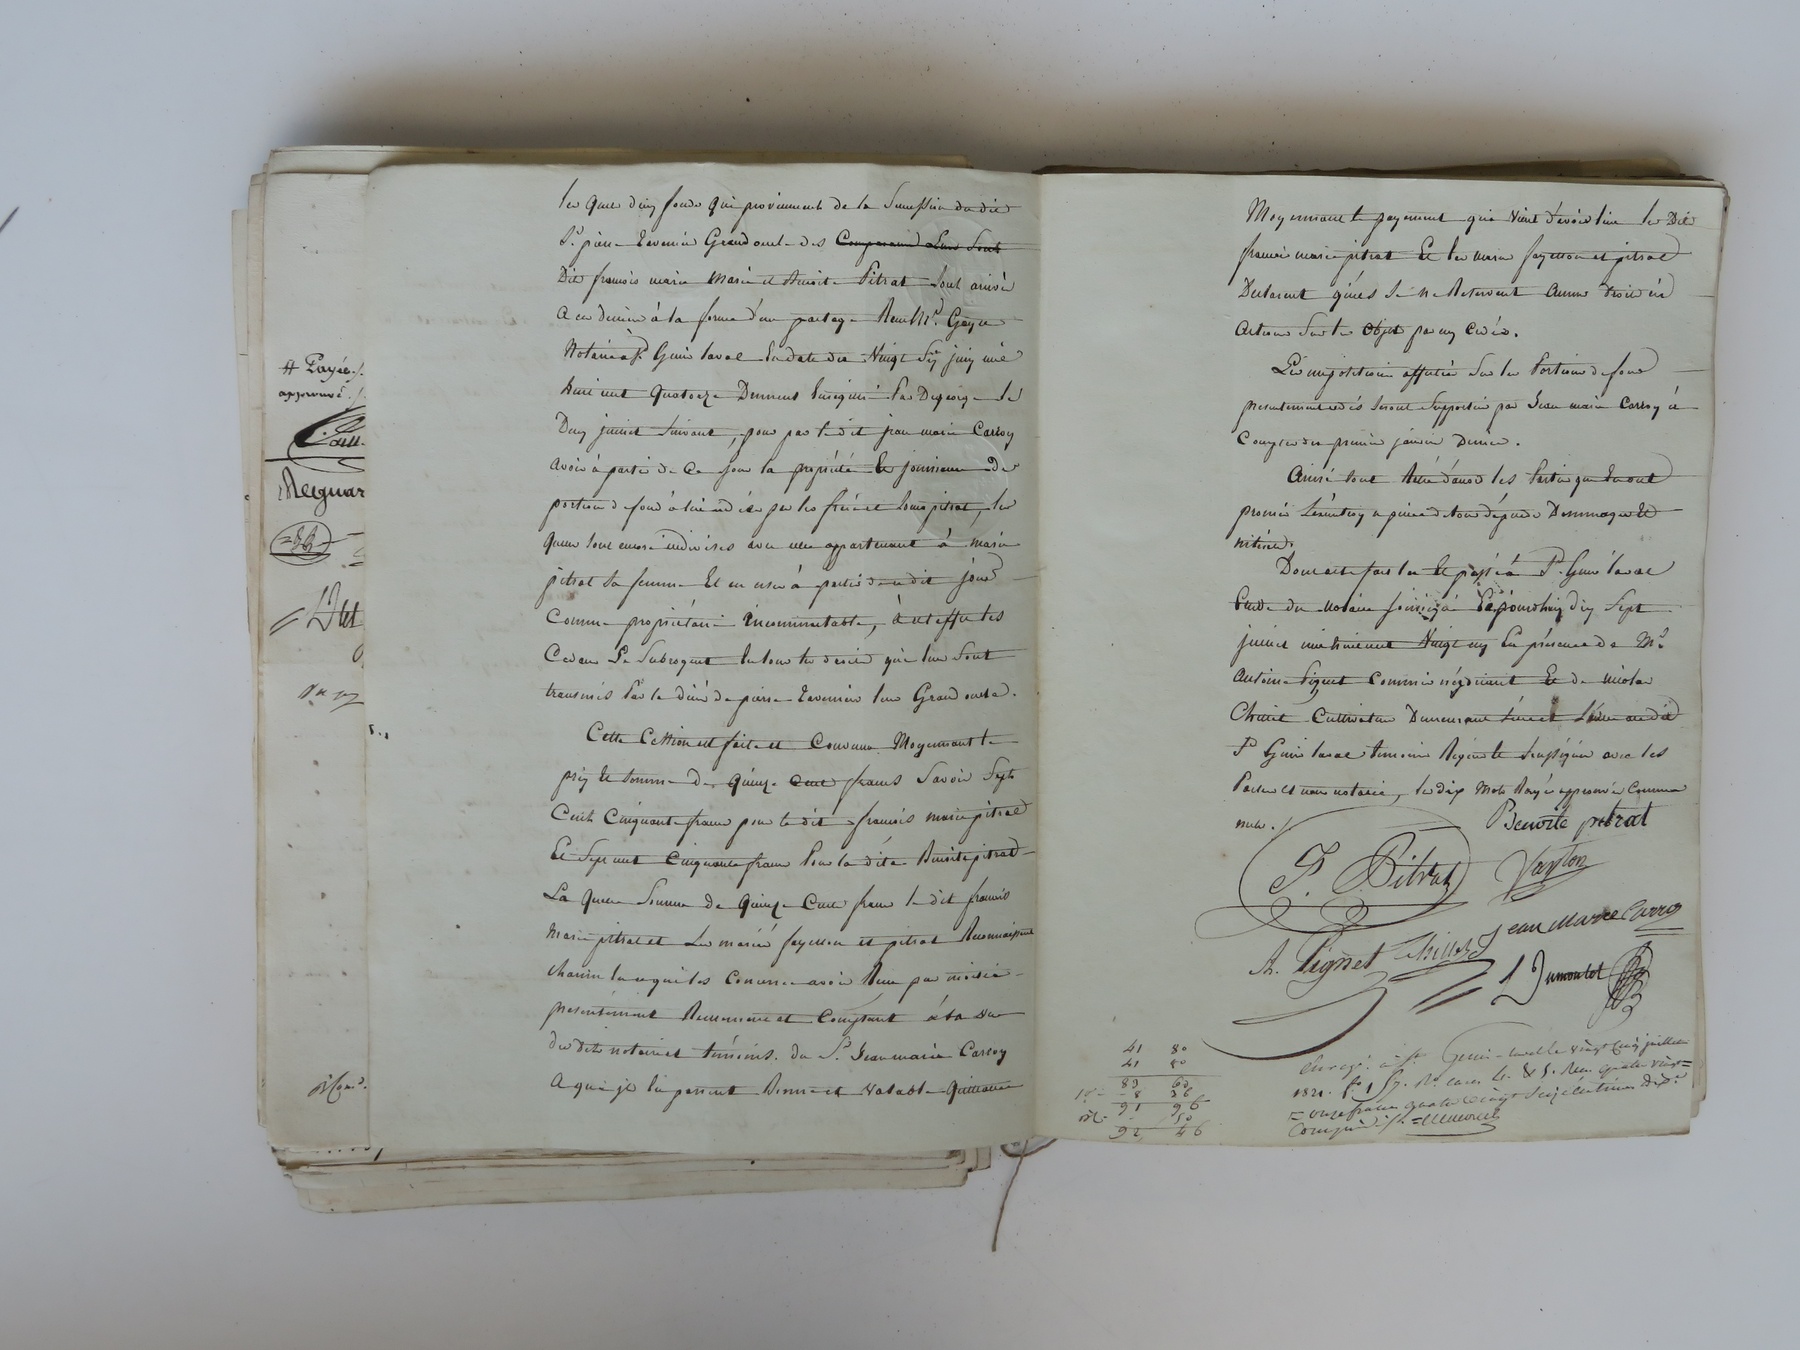 # Rayée ./.
approuvé
les quels dix fonds qui proviennent de la Succession du dit
Sr. pierre Tavernier Grand oncle des Comparans leurs sont
Dits françois marie Marie et Benoite Pitrat sont arrivés
a ce dernier à la forme d'un partage Reçu Me. Goyne
Notaire à St. Genis laval En date du Vingt Six juin mil
huit cent Quatorze Dument Enregistré Par Degeorge le
Deux juillet Suivant, pour par le dit jean marie Carroy
avoir à partir de Ce jour la propriété Et jouissance Des
portions de fond à lui cédées par les frère et soeur pitrat, les
quels sont encore indivises avec celle appartenant à marie
pitrat Sa femme Et en user à partir de ce dit jour
Comme propriétaire Incommutable, à cet effet les
Cedans Le Subrogent En tous les droits qui leur Sont
transmis Par le décès de pierre Tavernier leur Grand oncle.
Cette Cession est faite et Convenue Moyennant le
prix Et Somme De Quinze Cent francs Savoir Sept
Cent Cinquante francs pour le dit françois marie pitrat
Et Sept cent Cinquante francs Pour la dite Benoite pitrat
La Quelle Somme de Quinze Cent francs le dit françois
Marie pitrat et Les mariés fayetton et pitrat Reconnaissent
chacun En ce qui les Concerne avoir Reçu par moitié
présentement Réellement et Comptant à la vue
des dits notaire et témoins. du Sr. Jean marie Carroy
A qui ils En passent Bonne et Valable Quittance
Moyennant le payement qui Vient d'avoir lieu les Dits
françois marie pitrat Et les mariés fayetton et pitrat
Déclarent qu'ils Se ne Réservent Aucun Droit ni
Actions Sur les Objets par eux Cédés.
Les impositions affectées Sur les Portions de fond
présentement cédés Seront Supportées par Jean marie Carroy à
Compter du premier janvier Dernier.
Ainsi Tout Arrêté d'accord les Parties qui En ont
promis L'exécution à peine de tous dépens Dommages Et
intérêts.
Dont acte fait lu Et passé à St. Genis laval
Etude du notaire soussigné Aujourd'huy dix Sept
juillet mil huit cent Vingt un En présence de Mr.
Antoine Pignet Commis négociant Et de nicolas
Chillet Cultivateur Demeurans L'un et L'autre au dit
St Genis laval témoins Requis Et Soussignés avec les
Parties et nous notaire, les dix Mots Rayés approuvés Comme
nuls ./.
Benoite pitrat
F. Pitrat
Jean Marie Carroy
A. Pignet Chillet
Dumontet
41 80
41 80
83 60
10e 8 36
91 96
50
92 46
Enregé. à St Genis-laval le vingt cinq juillet
1821. fo. 157. Ro. cases 4. & 5. Reçu quatre vingt
= onze francs quatre vingt seize centimes Dixe.
Compris ./.